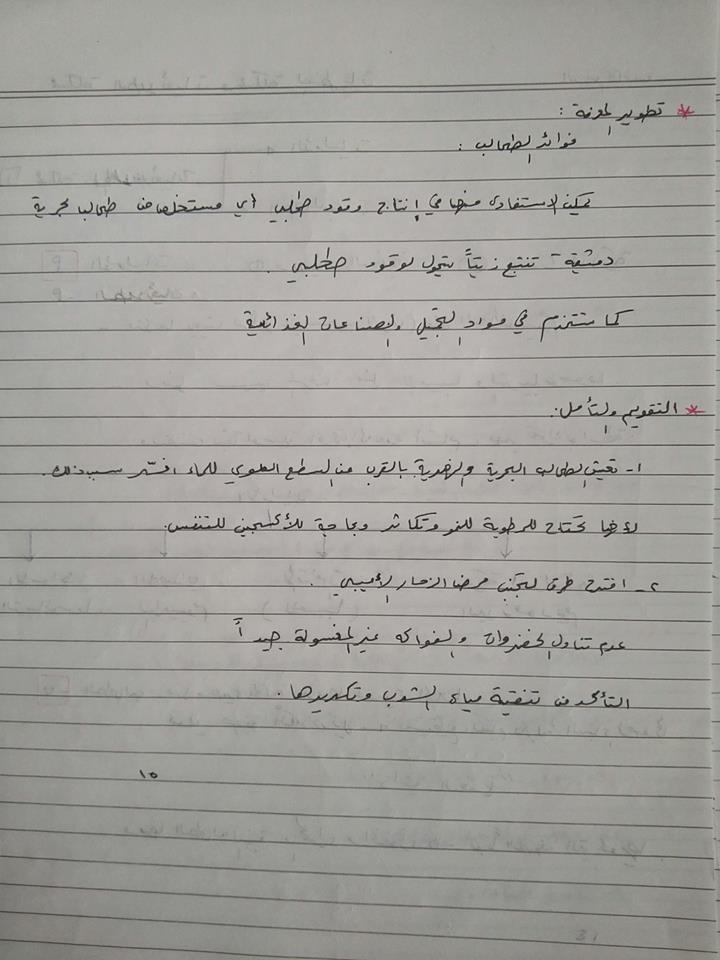 * تطوير المعرفة :
فوائد الطحالب :
يمكن الاستفادة منها في إنتاج وقود طحلبي أي مستخلص من طحالب بحرية
دمشقية تنتج زيتاً يتحول لوقود طحلبي .
كما تستخدم في مواد التجميل والصناعات الغذائية
* التقويم والتأمل :
١- تعيش الطحالب البحرية والنهرية بالقرب من السطح العلوي للماء افسّر سبب ذلك .
لأنها تحتاج للرطوبة للنمو وتكاثر وبحاجة للأكسجين للتنفس .
٢- اقترح طرق لتجنب مرض الزحار الأميبي .
عدم تناول الخضروات والفواكه غير المغسولة جيداً
التأكد من تنقية مياه الشرب وتكريرها .
١٥